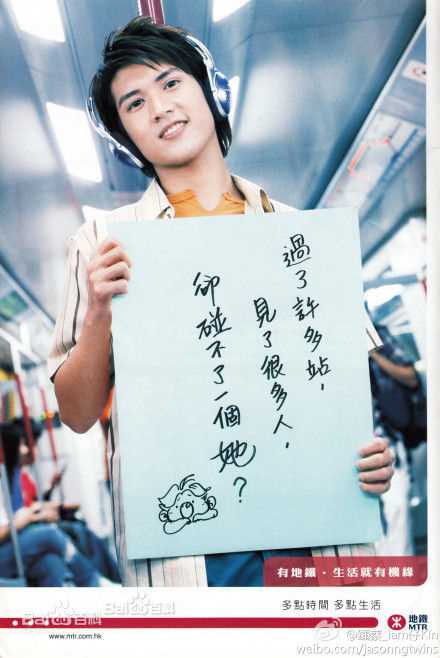 過了許多站,
見了很多人,
卻碰不了一個她?
有地鐵・生活就有機緣
多點時間 多點生活
地鐵
MTR
www.mtr.com.hk
Bai百科
Bai百科
weibo.com/jasonngtwins